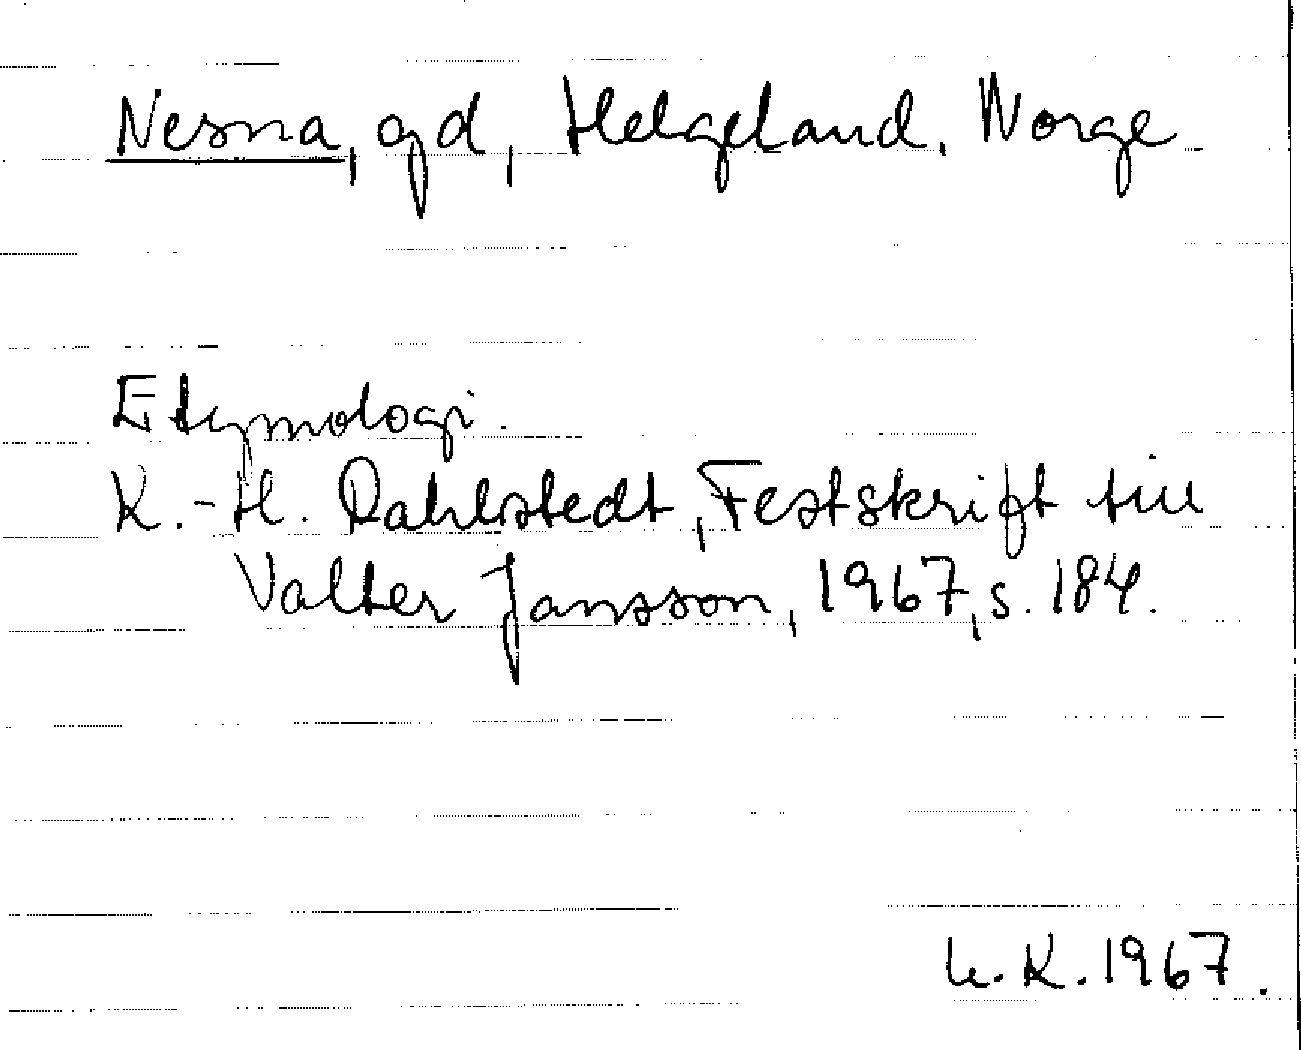 Nesna, gd, Helgeland, Norge
Etymologi.
K.-H. Dahlstedt, Festskrift till
Valter Jansson, 1967, s. 184.
K. 1967.